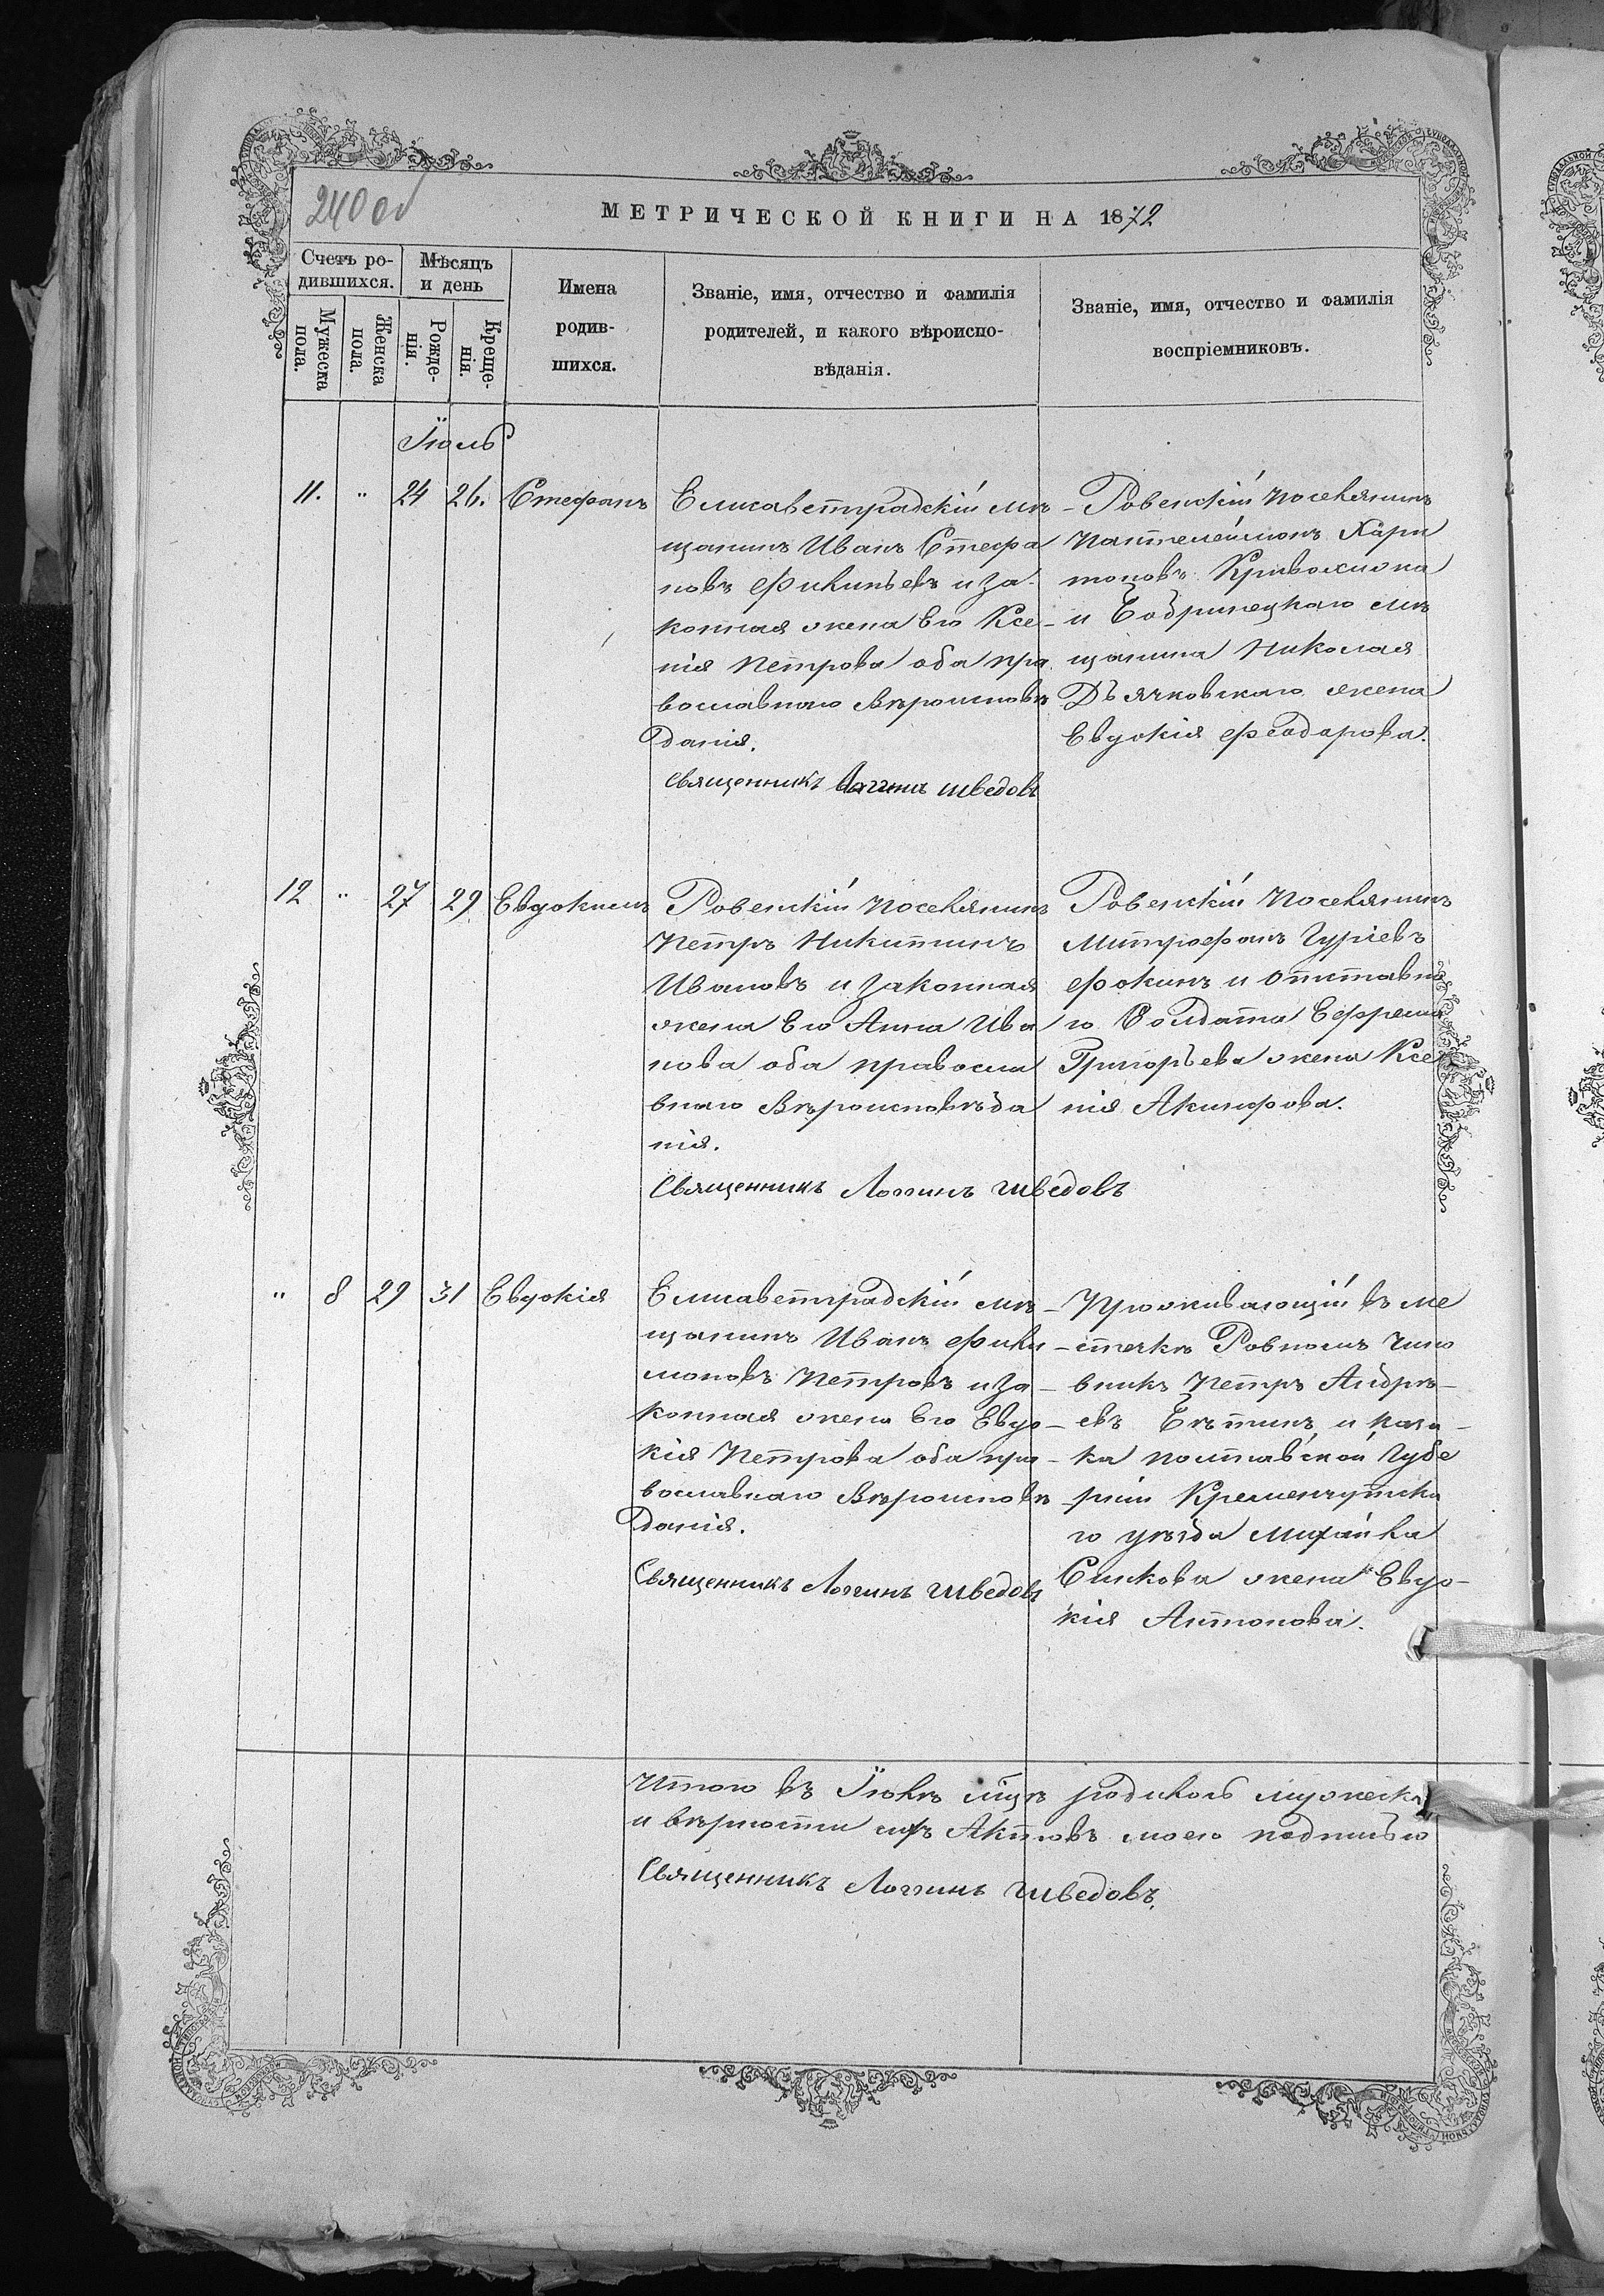 240 об
МЕТРИЧЕСКОЙ КНИГИ НА 1872
Счетъ ро-
дившихся.
Мѣсяцъ
и день
Мужеска
пола.
Женска
пола.
Рожде-
нія.
Креще-
нія.
Имена
родив-
шихся.
Званіе, имя, отчество и фамилія
родителей, и какого вѣроиспо-
вѣданія.
Званіе, имя, отчество и фамилія
воспріемниковъ.
Іюль
11. " 24 26. Стефанъ
Елисаветградскій мѣ
щанинъ Иванъ Стефа
новъ Филипьевъ и за-
конная жена Его Ксе-
нія Петрова оба пра
вославнаго Вѣроисповѣ
данія.
Священникъ Логинъ Шведовъ
Ровенскій Поселянинъ
Пантелеймонъ Хари
тоновъ
и Бобринецкаго мѣ
щанина Николая
Дьячковскаго жена
Евдокія Феодорова.
12 " 27 29 Евдокимъ
Ровенскій Поселянинъ
Петръ Никитинъ
Ивановъ и законная
жена Его Анна Ива
нова оба правосла
внаго Вѣроисповѣда
нія.
Священникъ Логгинъ Шведовъ
Ровенскій Поселянинъ
Митрофанъ Гуріевъ
Фокинъ и Отставна
го Солдата Ефрема
Григорьева жена Ксе
нія Акинфова.
" 8 29 31 Евдокія
Елисаветградскій мѣ-
щанинъ Иванъ Фили
моновъ Петровъ и за-
конная жена Его Евдо-
кія Петрова оба пра-
вославнаго Вѣроисповѣ
данія.
Священникъ Логгинъ Шведовъ
Проживающій въ ме
-стечкѣ Ровномъ Чино
вникъ Петръ Андрѣ-
евъ и каза-
ка Полтавской Губе
рніи Кременчугска
го уѣзда Михайла
жена Евдо-
кія Антонова.
Итого въ Іюлѣ мцѣ родилось мужеска
и вѣрности Актовъ моею подписью
Священникъ Логгинъ Шведовъ.